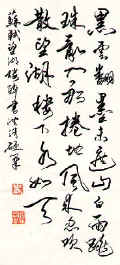 黑雲翻墨未遮山白雨跳
珠亂入船捲地風來忽吹
散望湖樓下水如天
蘇軾望湖樓醉書